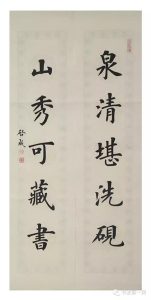 泉清堪洗硯
山秀可藏書
啓功